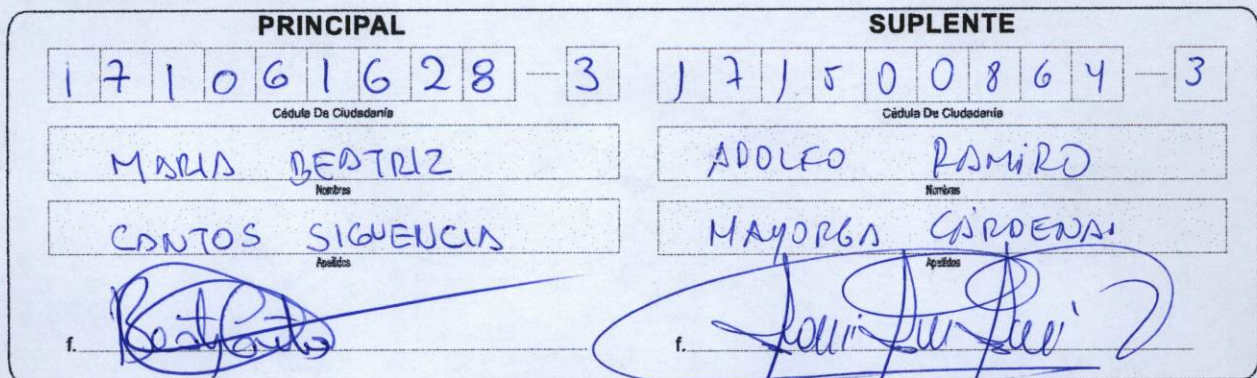 PRINCIPAL
171061628-3
Cédula De Ciudadanía
MARIA BEATRIZ
Nombres
CANTOS SIGUENCIA
Apellidos
f.
SUPLENTE
171500864-3
Cédula De Ciudadanía
ADOLFO RAMIRO
Nombres
MAYORGA CÁRDENAS
Apellidos
f.